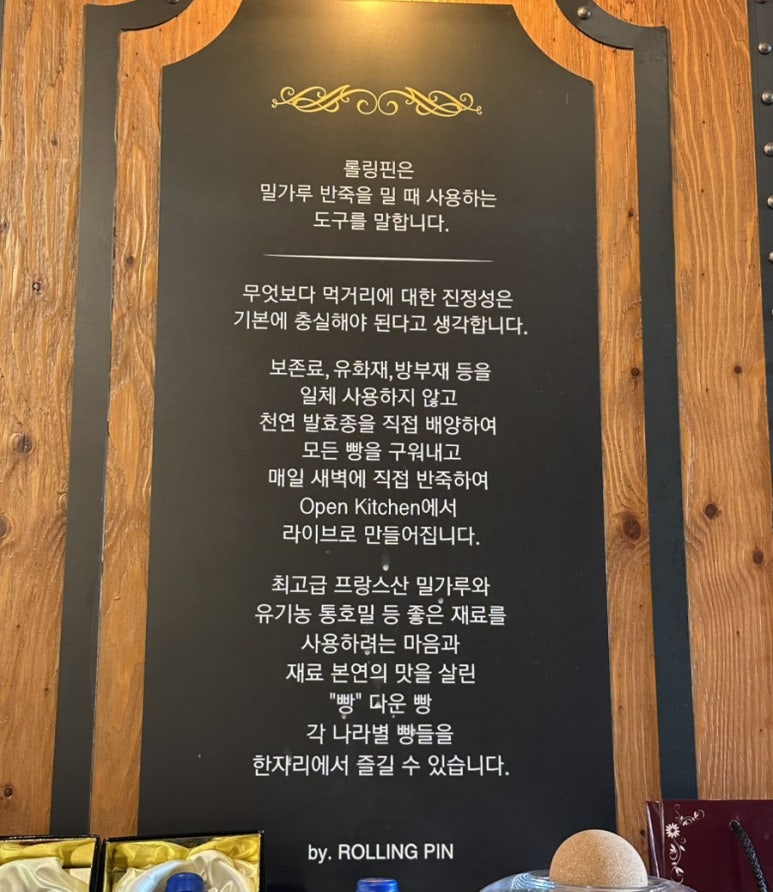 롤링핀은
밀가루 반죽을 밀 때 사용하는
도구를 말합니다.
무엇보다 먹거리에 대한 진정성은
기본에 충실해야 된다고 생각합니다.
보존료, 유화재,방부재 등을
일체 사용하지 않고
천연 발효종을 직접 배양하여
모든 빵을 구워내고
매일 새벽에 직접 반죽하여
Open Kitchen에서
라이브로 만들어집니다.
최고급 프랑스산 밀가루와
유기농 통호밀 등 좋은 재료를
사용하려는 마음과
재료 본연의 맛을 살린
"빵" 다운 빵
각 나라별 빵들을
한자리에서 즐길 수 있습니다.
by. ROLLING PIN